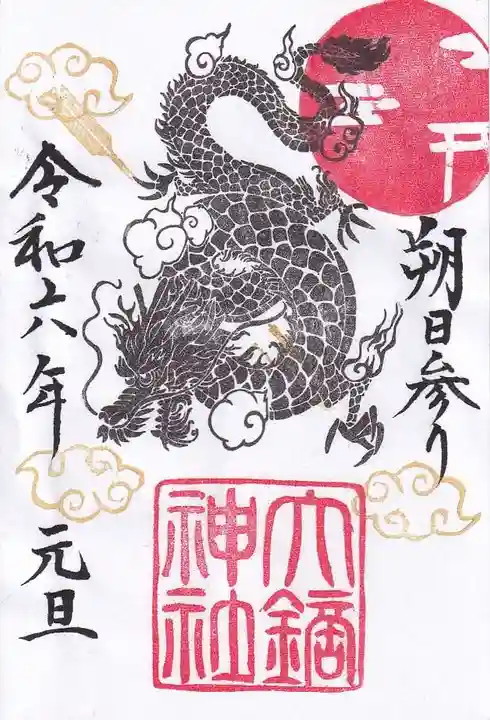 朔日参り
令和六年 元旦
大鏑
神社